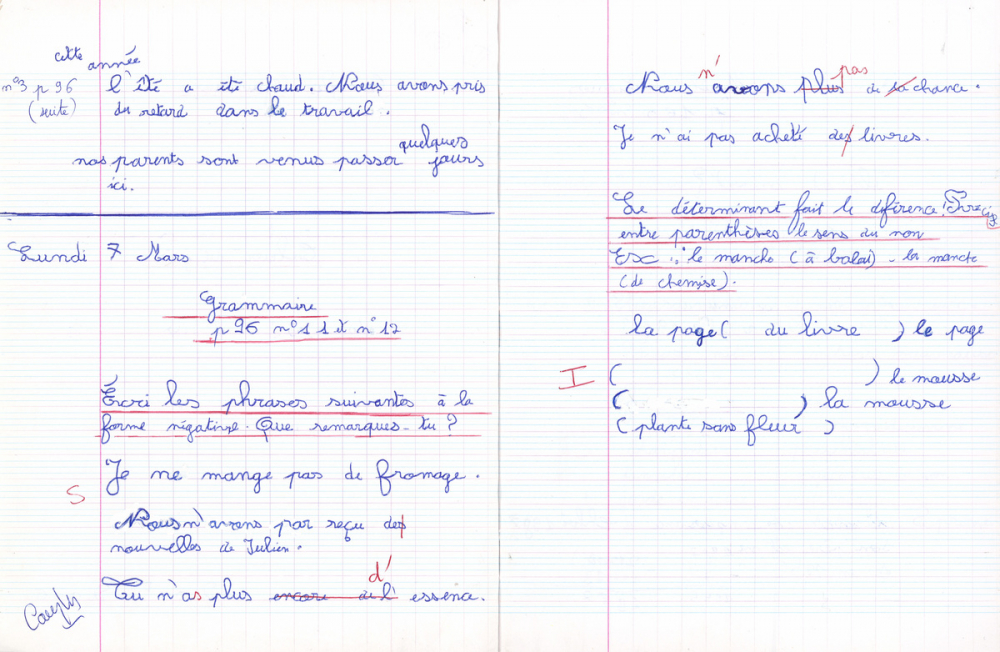 cette année
n°3 p 96 l'Été a été chaud. Nous avons pris
(suite) du retard dans le travail.
quelques
nos parents sont venus passer jours
ici.
Lundi 7 Mars
Grammaire
p 96 n°11 et n°12
Écri les phrases suivantes à la
forme négative. Que remarques-tu?
Je ne mange pas de fromage.
S
Nous n'avons par reçu des
nouvelles de Julien.
d'
Tu n'as plus encore de l' essence.
n' pas
Nous avons plus de sa chance.
Je n'ai pas acheté des livres.
Le déterminant fait le diférence! Préci
entre parenthèses le sens du non
: le manche (à balai) - la manche
(de chemise).
la page ( du livre ) le page
I ( ) le mousse
( ) la mousse
(plante sans fleur )